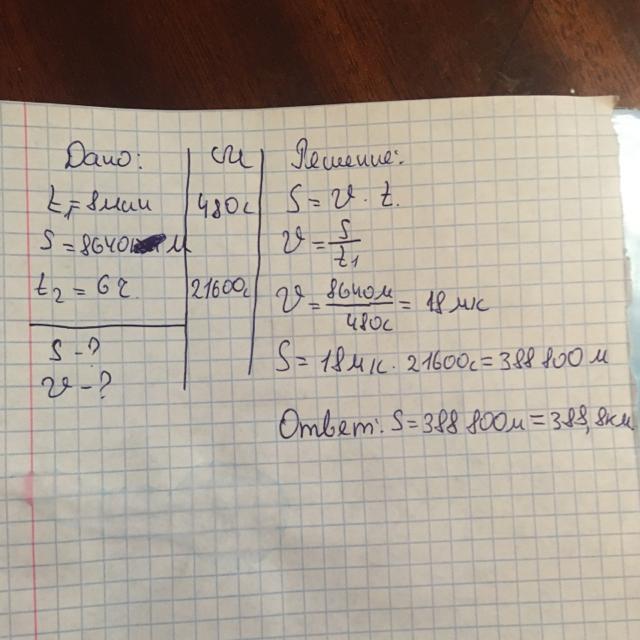 Дано:
t₁=8мин
S=8640м
t₂=6ч.
S-?
υ-?
СИ
480с
21600с
Решение:
S=υ·t.
υ=S/t₁
υ=8640м/480с=18мк
S=18мк·21600с=388800м
Ответ: S=388800м=388,8км